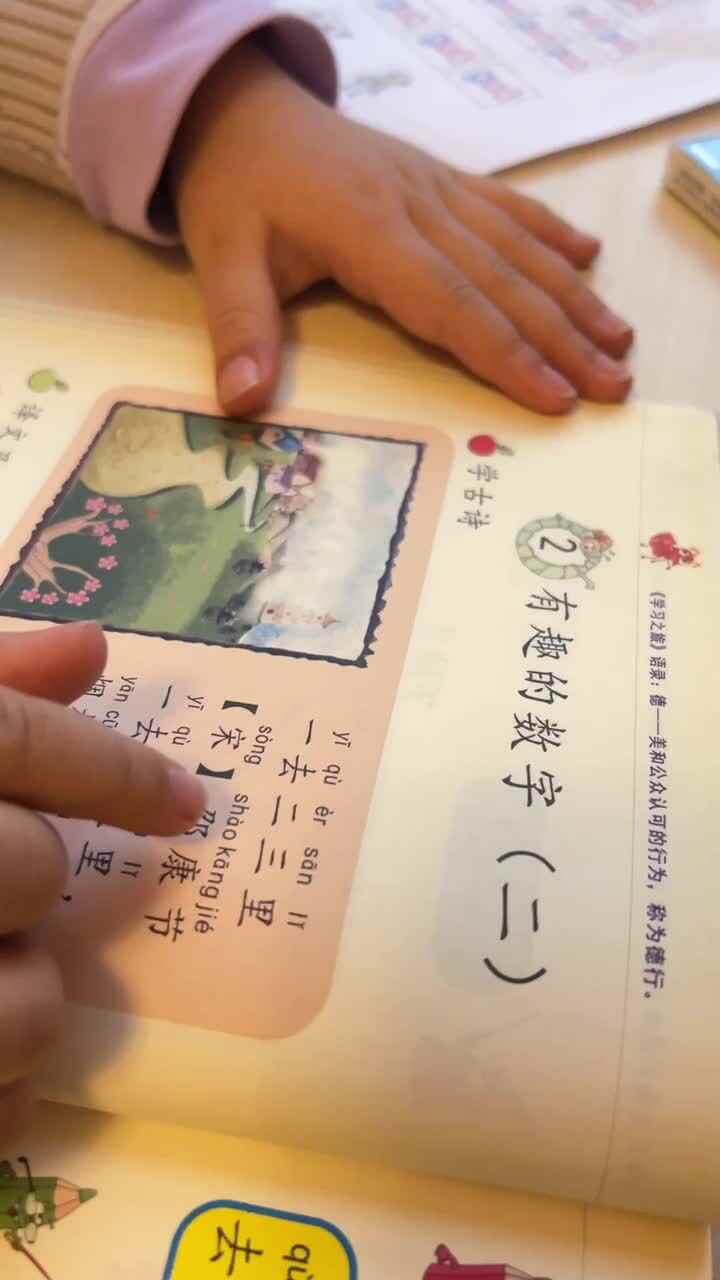 《学习之旅》语录：德——美和公众认可的行为，称为德行。
2 有趣的数字（二）
学古诗
yī qù èr sān lǐ
一去二三里
sòng shào kāng jié
【宋】邵康节
yī qù lǐ
一去 里，
yān
烟
译文
qù
去